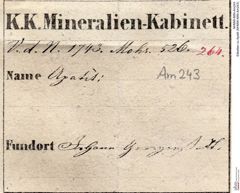 K.K. Mineralien-Kabinett.
V. d. N. 1743. Mohs. 526. 264.
Name Apatit;
Am 243
Fundort Johann Georgenst.